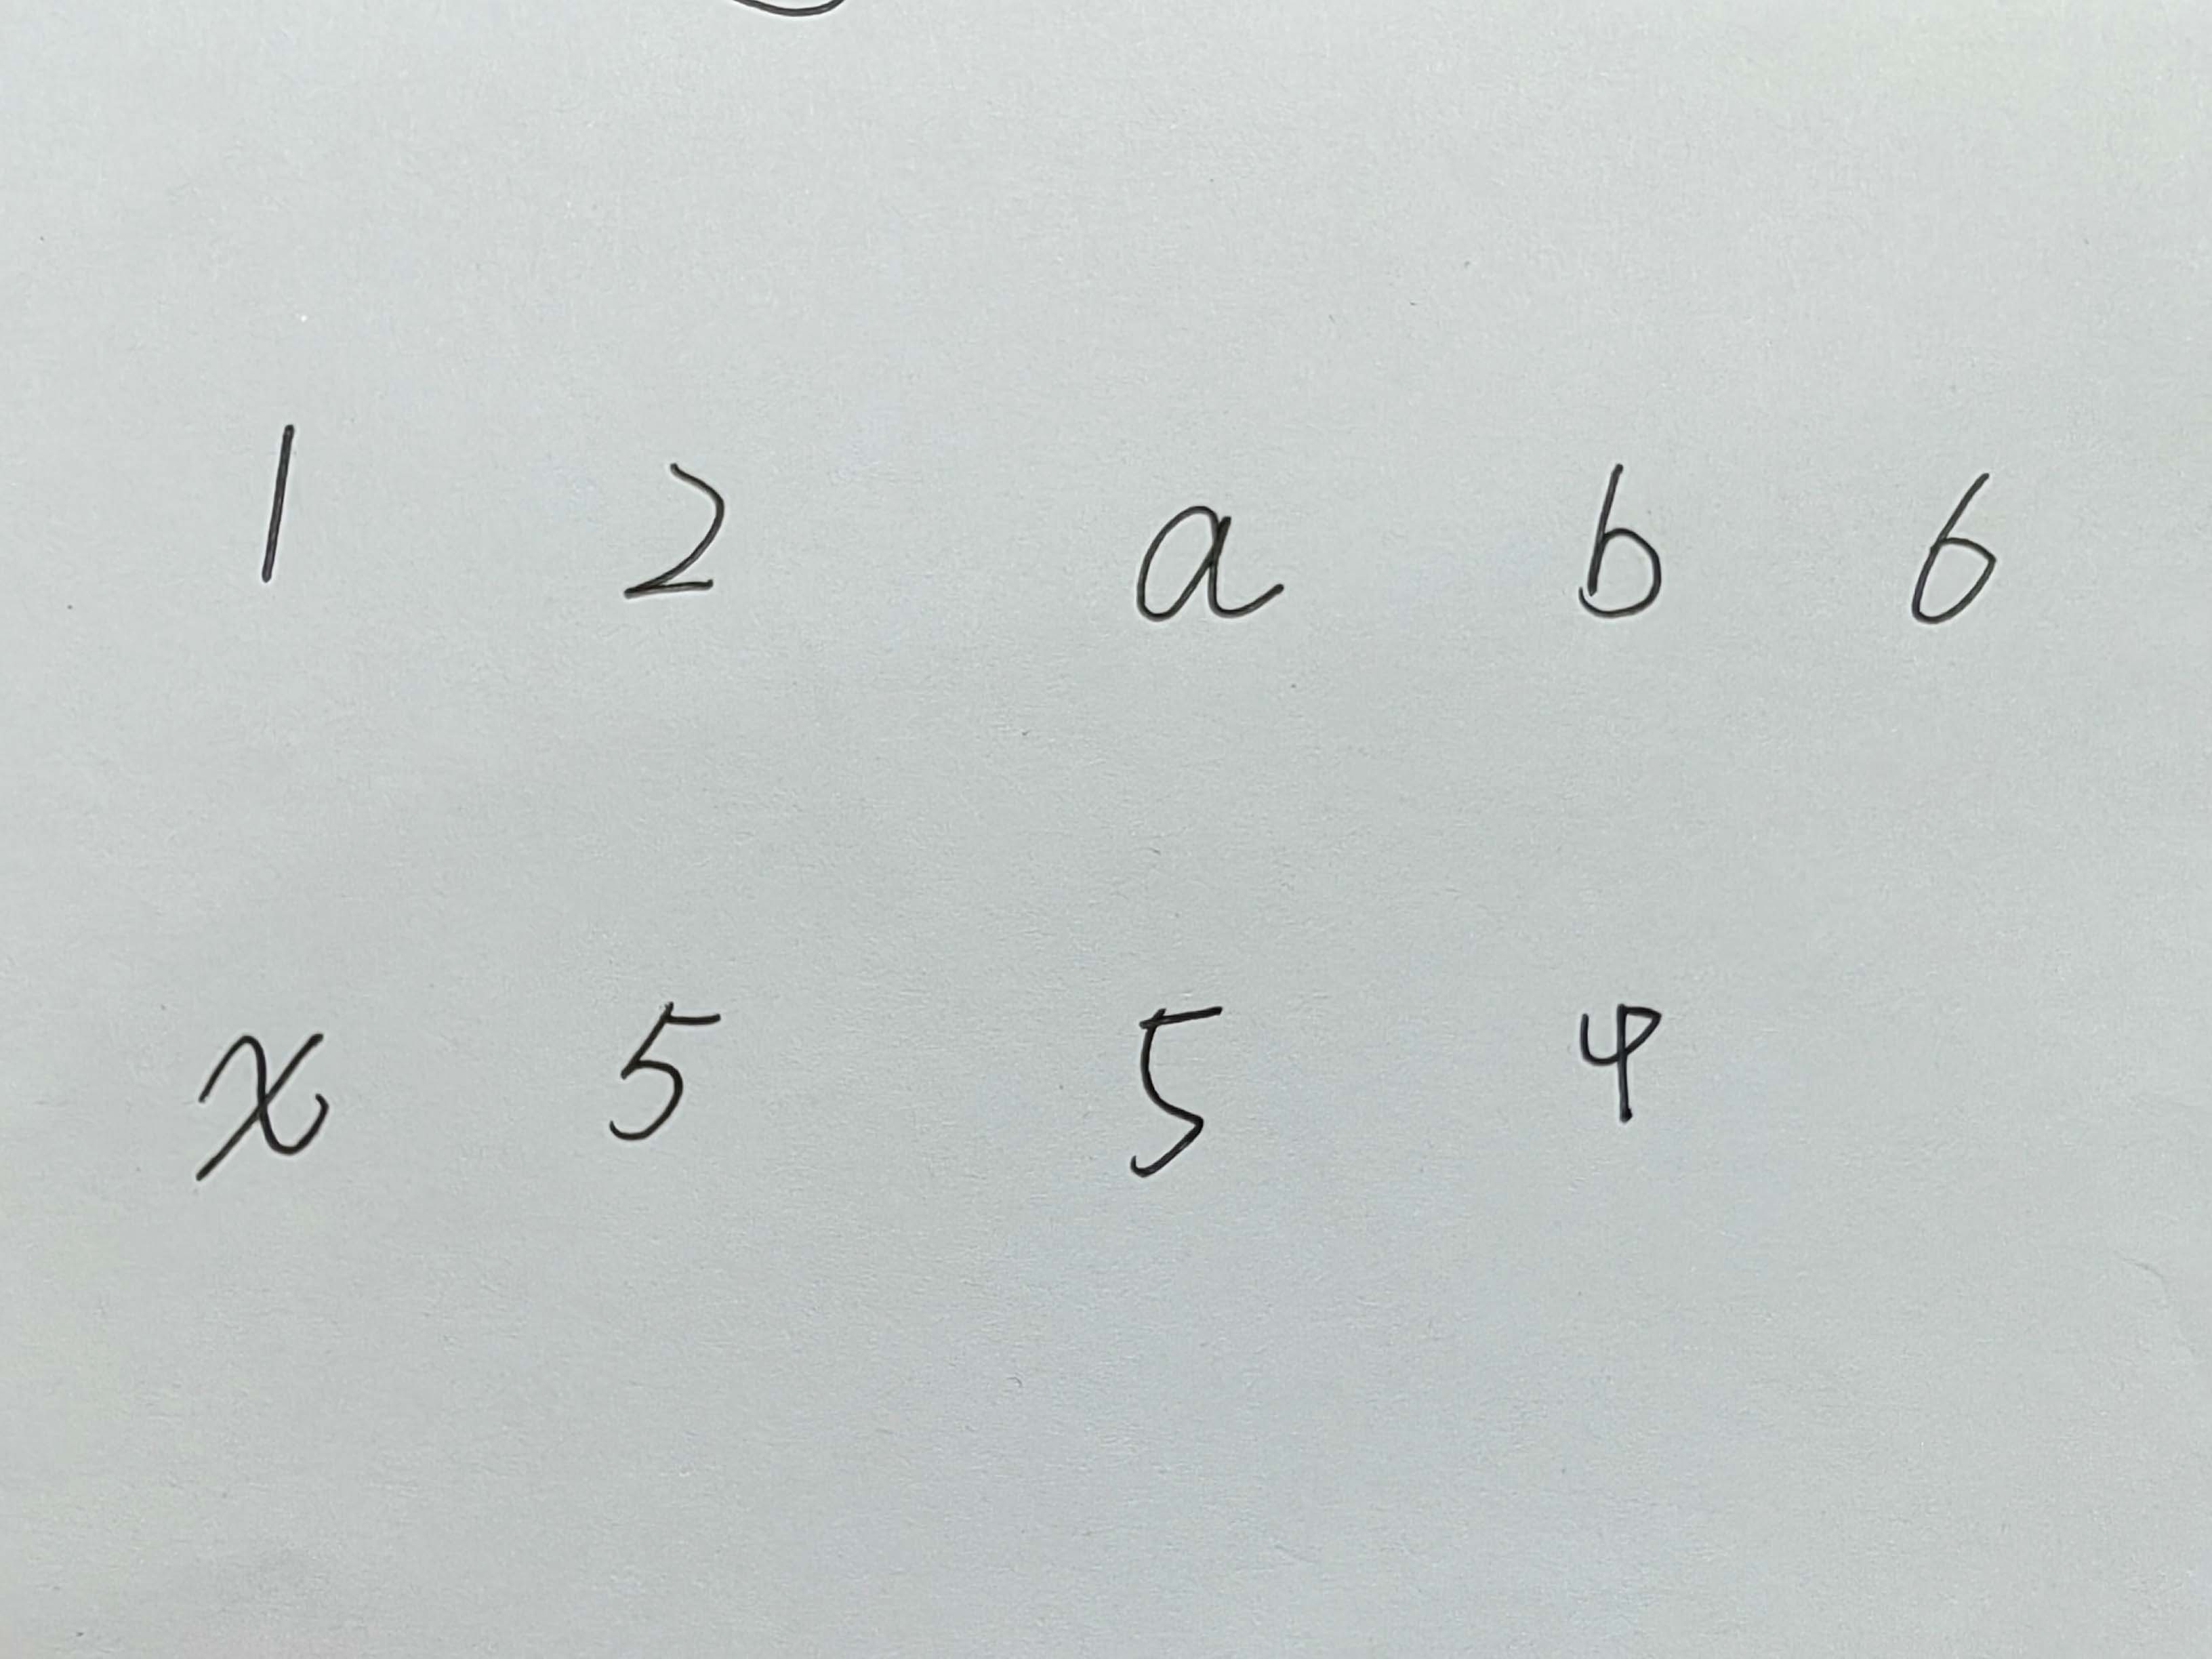 1 2 a b 6
x 5 5 4